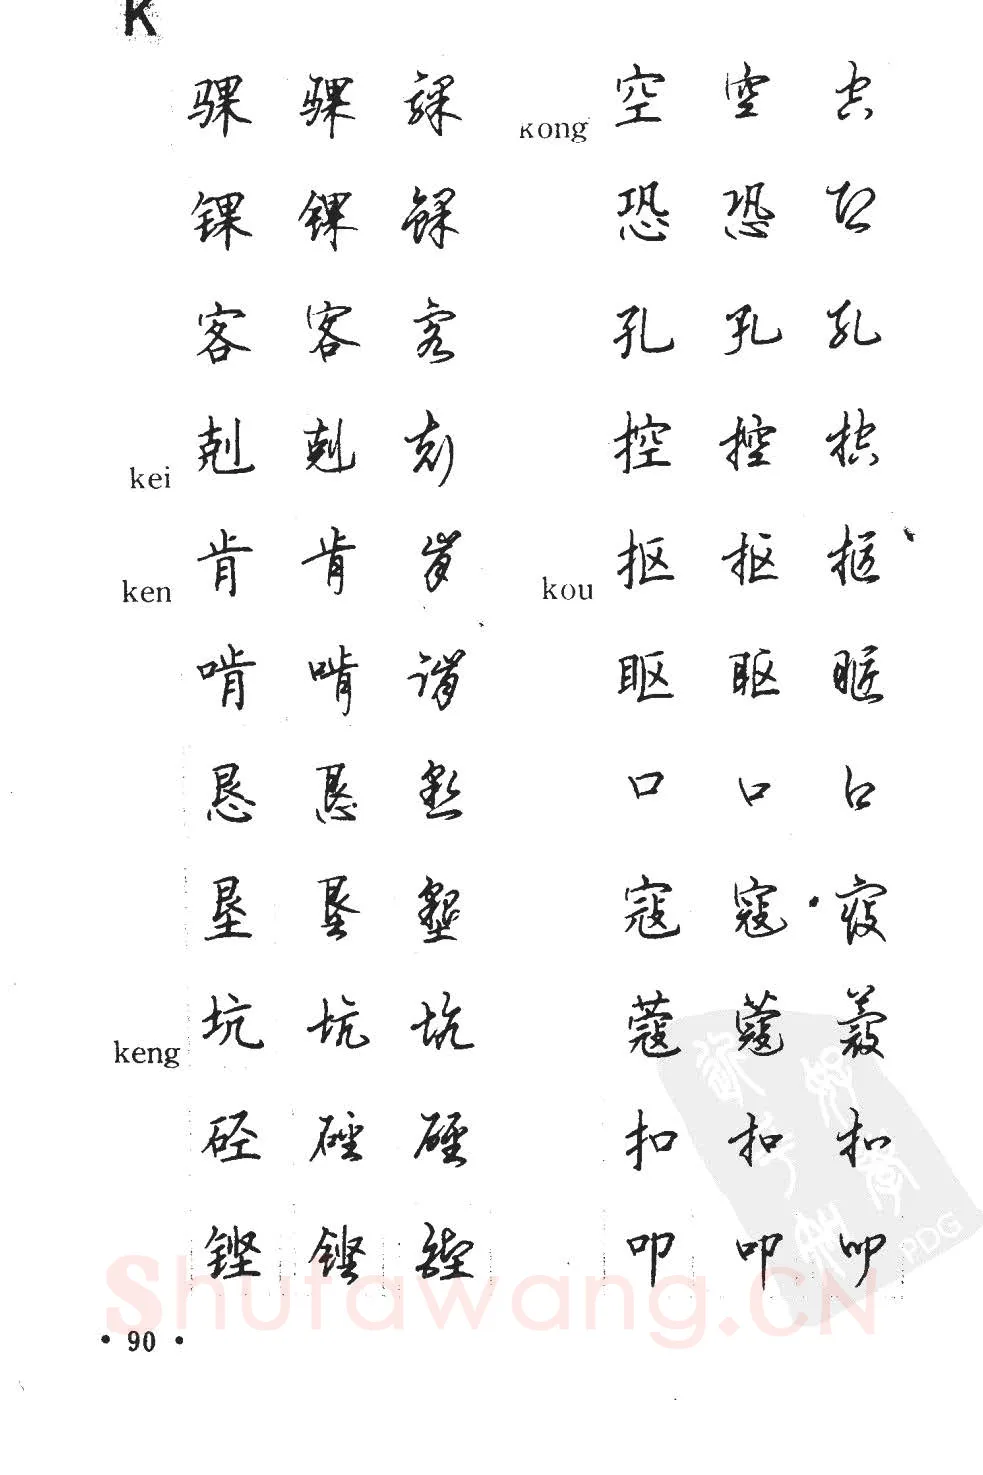 K
骒 骒 骒
锞 锞 锞
客 客 客
kei 剋 剋 剋
ken 肯 肯 肯
啃 啃 啃
恳 恳 恳
垦 垦 垦
keng 坑 坑 坑
硁 硁 硁
铿 铿 铿
kong 空 空 空
恐 恐 恐
孔 孔 孔
控 控 控
kou 抠 抠 抠
眍 眍 眍
口 口 口
寇 寇 寇
蔻 蔻 蔻
扣 扣 扣
叩 叩 叩
PDG
Shufawang.CN
• 90 •